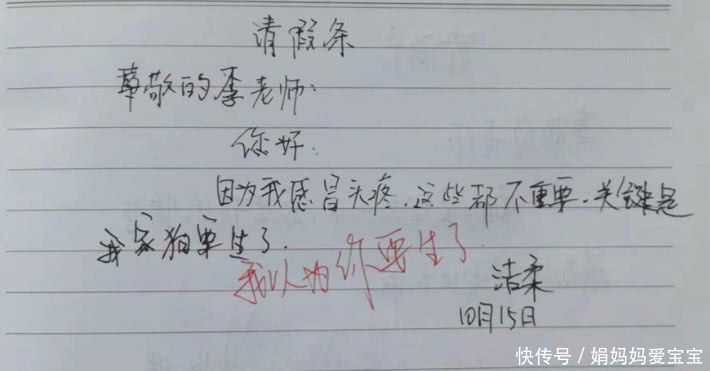 请假条
尊敬的李老师:
你好:
因为我感冒头疼.这些都不重要.关键是
我家狗要生了.
我以为你要生了
洁柔
10月15日
快传号/娟妈妈爱宝宝